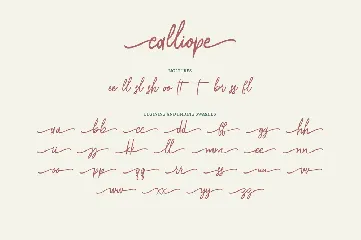 calliope
LIGATURES
ee ll sl sh oo tt t br ss fl
BEGINNING AND ENDING SWASHES
aa bb cc dd ff gg hh
ii jj kk ll mm ee nn
oo pp qq rr ss uu vv
ww xx yy zz